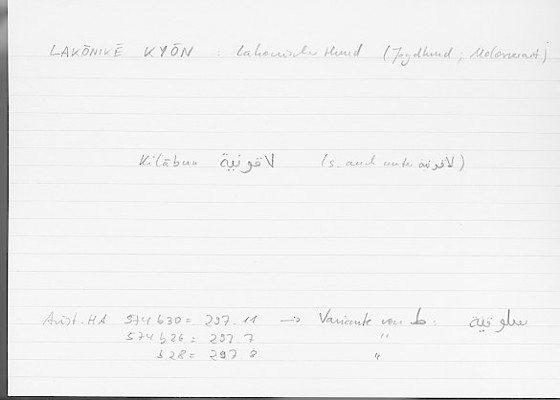 LAKŌNIKĒ KYŌN : lakonischer Hund (Jagdhund; Molosserart)
Kilābun لاقونية (s. auch unter لاقونية)
Arist. HA 574 b30 = 297.11 → Variante von ط: سلوقية
574 b26 = 297.7 "
b28 = 297.8 "